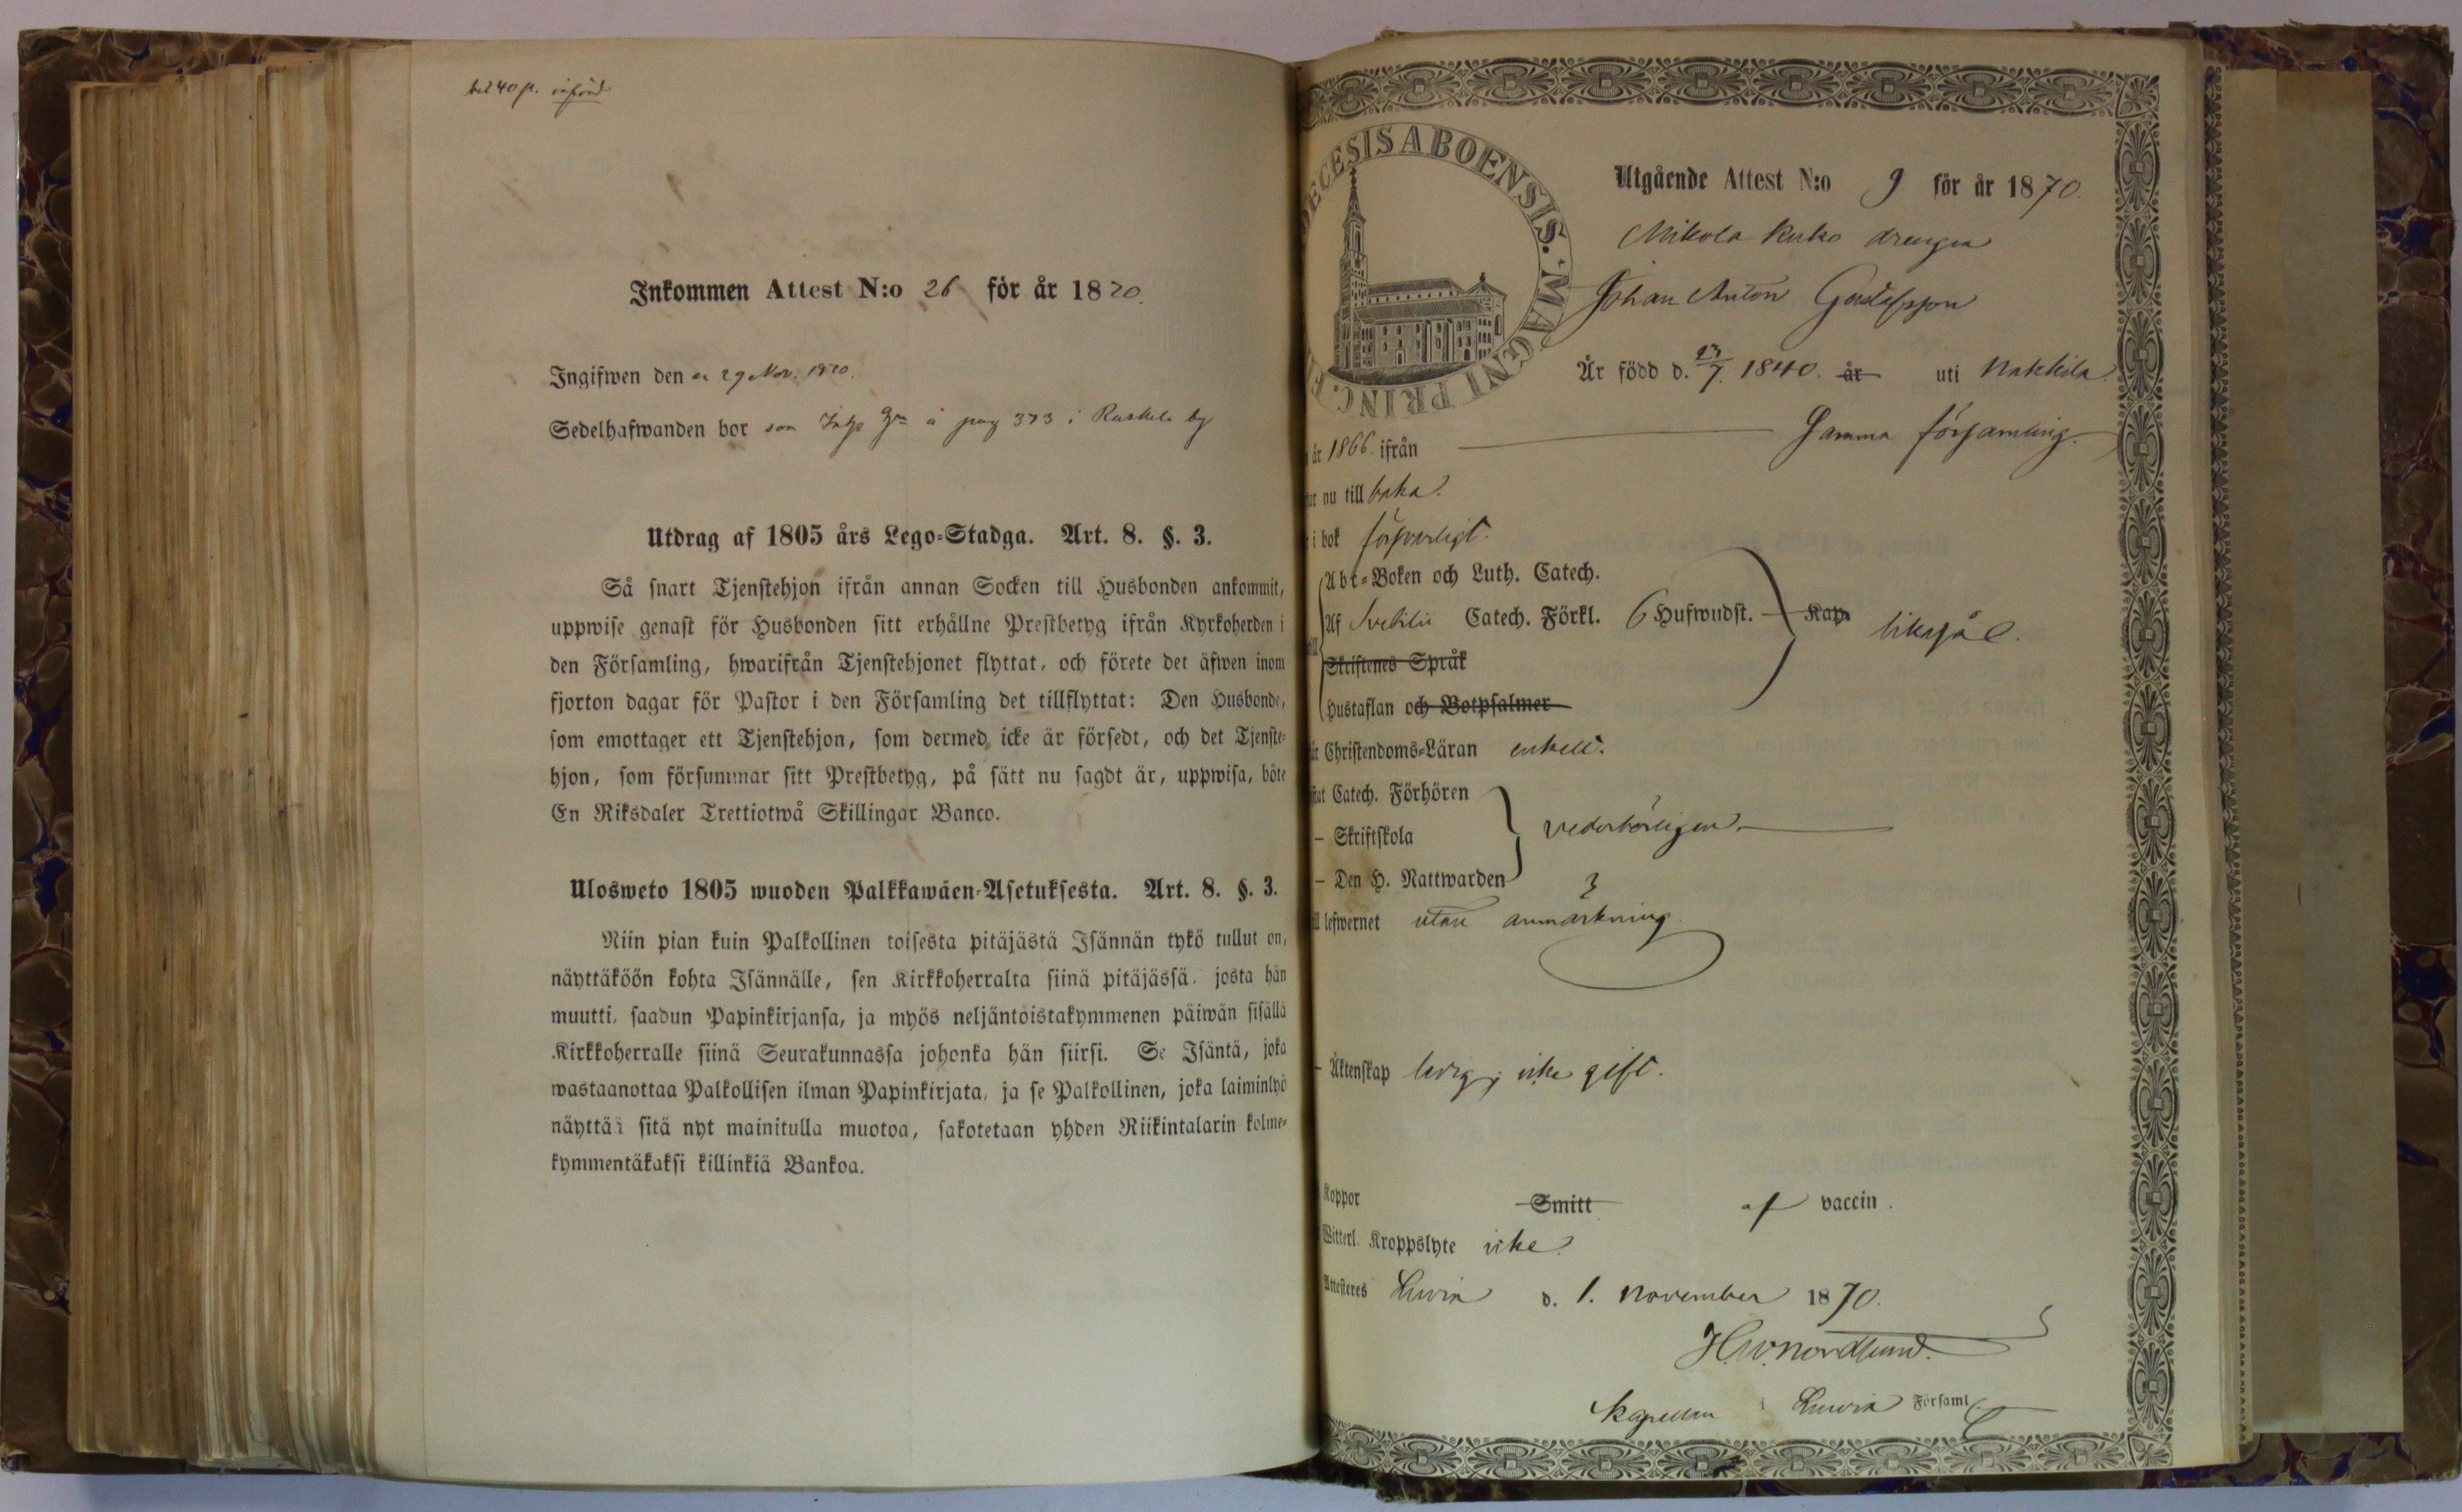 bet 40 p. införd
Inkommen Attest N:o 26 för år 1870.
Ingifwen den 29 Nov. 1870.
Sedelhafwanden bor som å pag 373 i Ruskela by
Utdrag af 1805 års Lego-Stadga. Art. 8. §. 3.
Så snart Tjenstehjon ifrån annan Socken till Husbonden ankommit,
uppwise genast för Husbonden sitt erhållne Prestbetyg ifrån Kyrkoherden i
den Församling, hwarifrån Tjenstehjonet flyttat, och förete det äfwen inom
fjorton dagar för Pastor i den Församling det tillflyttat: Den Husbonde,
som emottager ett Tjenstehjon, som dermed icke är försedt, och det Tjenste-
hjon, som försummar sitt Prestbetyg, på sätt nu sagdt är, uppwisa, böte
En Riksdaler Trettiotwå Skillingar Banco.
Ulosweto 1805 wuoden Palkkawäen-Asetuksesta. Art. 8. §. 3.
Niin pian kuin Palkollinen toisesta pitäjästä Isännän tykö tullut on,
näyttäköön kohta Isännälle, sen Kirkkoherralta siinä pitäjässä, josta hän
muutti, saadun Papinkirjansa, ja myös neljäntoistakymmenen päiwän sisällä
Kirkkoherralle siinä Seurakunnassa johonka hän siirsi. Se Isäntä, joka
wastaanottaa Palkollisen ilman Papinkirjata, ja se Palkollinen, joka laiminlyö
näyttää sitä nyt mainitulla muotoa, sakotetaan yhden Riikintalarin kolme-
kymmentäkaksi killinkiä Bankoa.
ECESIS ABOENSIS. MAGNI PRINC. F
Utgående Attest N:o 9 för år 1870.
Mikola Kuko drengen
Johan Anton Gustafsson
Är född d. 23/7 1840. år uti Nakkila
år 1866. ifrån Samma församling.
nu till baka.
i bok försvarligt.
Abc-Boken och Luth. Catech.
Af Svebilii Catech. Förkl. 6 Hufwudst. Kap. likaså.
Skriftenes Språk
Hustaflan och Botpsalmer
Christendoms-Läran enkelt.
Catech. Förhören
– Skriftskola vederbörligen
– Den H. Nattwarden
lefwernet utan anmärkning.
– Äktenskap ledig, icke gift.
Koppor Smitt af vaccin.
Witterl. Kroppslyte icke.
Attesteres Luvia d. 1. November 1870.
H.W. Nordlund.
Kapellan i Luvia Församl.